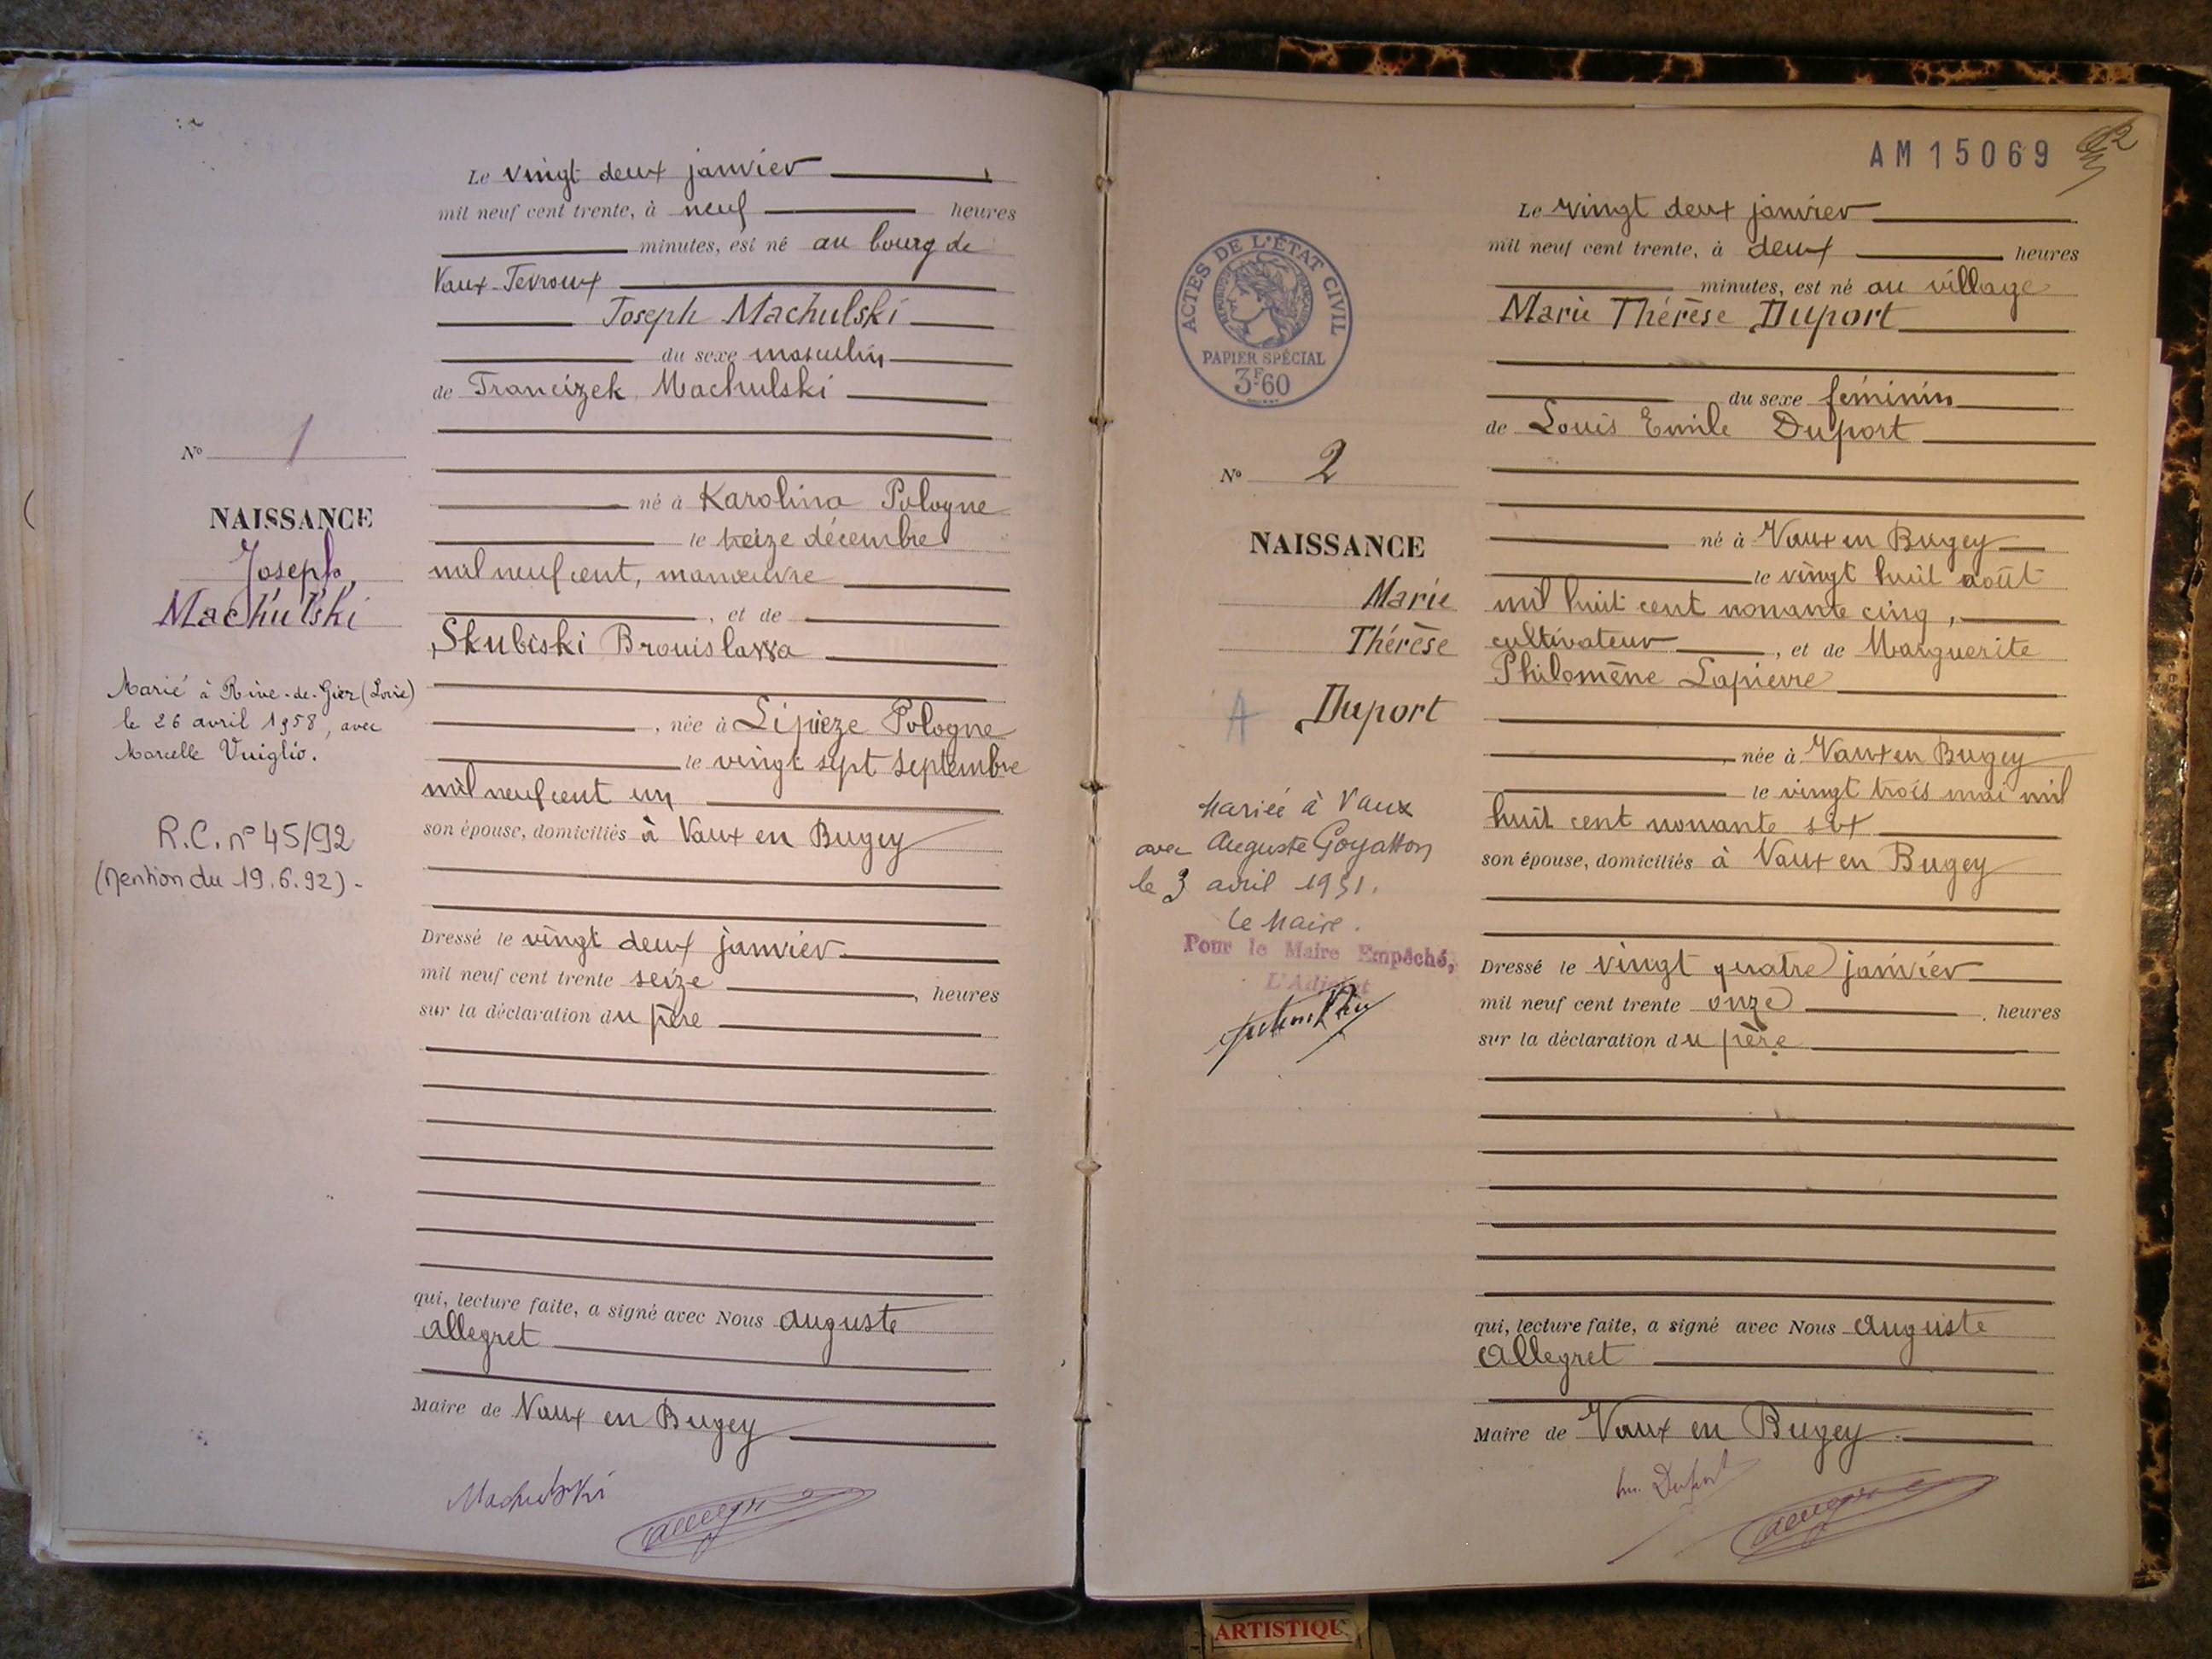 Le vingt deux janvier
mil neuf cent trente, à neuf heures
minutes, est né au bourg de
Vaux-Fevroux
Joseph Machulski
du sexe masculin
de Francizek Machulski
né à Karolina Pologne
le treize décembre
mil neuf cent, manœuvre
, et de
Skubiski Bronislawa
, née à Lipieze Pologne
le vingt sept septembre
mil neuf cent un
son épouse, domiciliés à Vaux en Bugey
Dressé le vingt deux janvier
mil neuf cent trente seize , heures
sur la déclaration du père
qui, lecture faite, a signé avec Nous Auguste
Allegret
Maire de Vaux en Bugey
Machulski
N° 1
NAISSANCE
Joseph
Machulski
Marié à Rive-de-Gier (Loire)
le 26 avril 1958, avec
Marcelle Vuiglio.
R.C. n° 45/92
(Mention du 19.6.92)-
AM 15069
2
ACTES DE L'ÉTAT CIVIL
RÉPUBLIQUE FRANÇAISE
PAPIER SPÉCIAL
3F60
N° 2
NAISSANCE
Marie
Thérèse
Duport
A
Mariée à Vaux
avec Auguste Goyatton
le 3 avril 1951.
Le Maire.
Pour le Maire Empêché,
L'Adjoint
Le vingt deux janvier
mil neuf cent trente, à deux heures
minutes, est né au village
Marie Thérèse Duport
du sexe féminin
de Louis Emile Duport
né à Vaux en Bugey
le vingt huit août
mil huit cent nonante cinq,
cultivateur , et de Marguerite
Philomène Lapierre
, née à Vaux en Bugey
le vingt trois mai mil
huit cent nonante six
son épouse, domiciliés à Vaux en Bugey
Dressé le vingt quatre janvier
mil neuf cent trente onze , heures
sur la déclaration du père
qui, lecture faite, a signé avec Nous Auguste
Allegret
Maire de Vaux en Bugey
Duport
ARTISTIQU